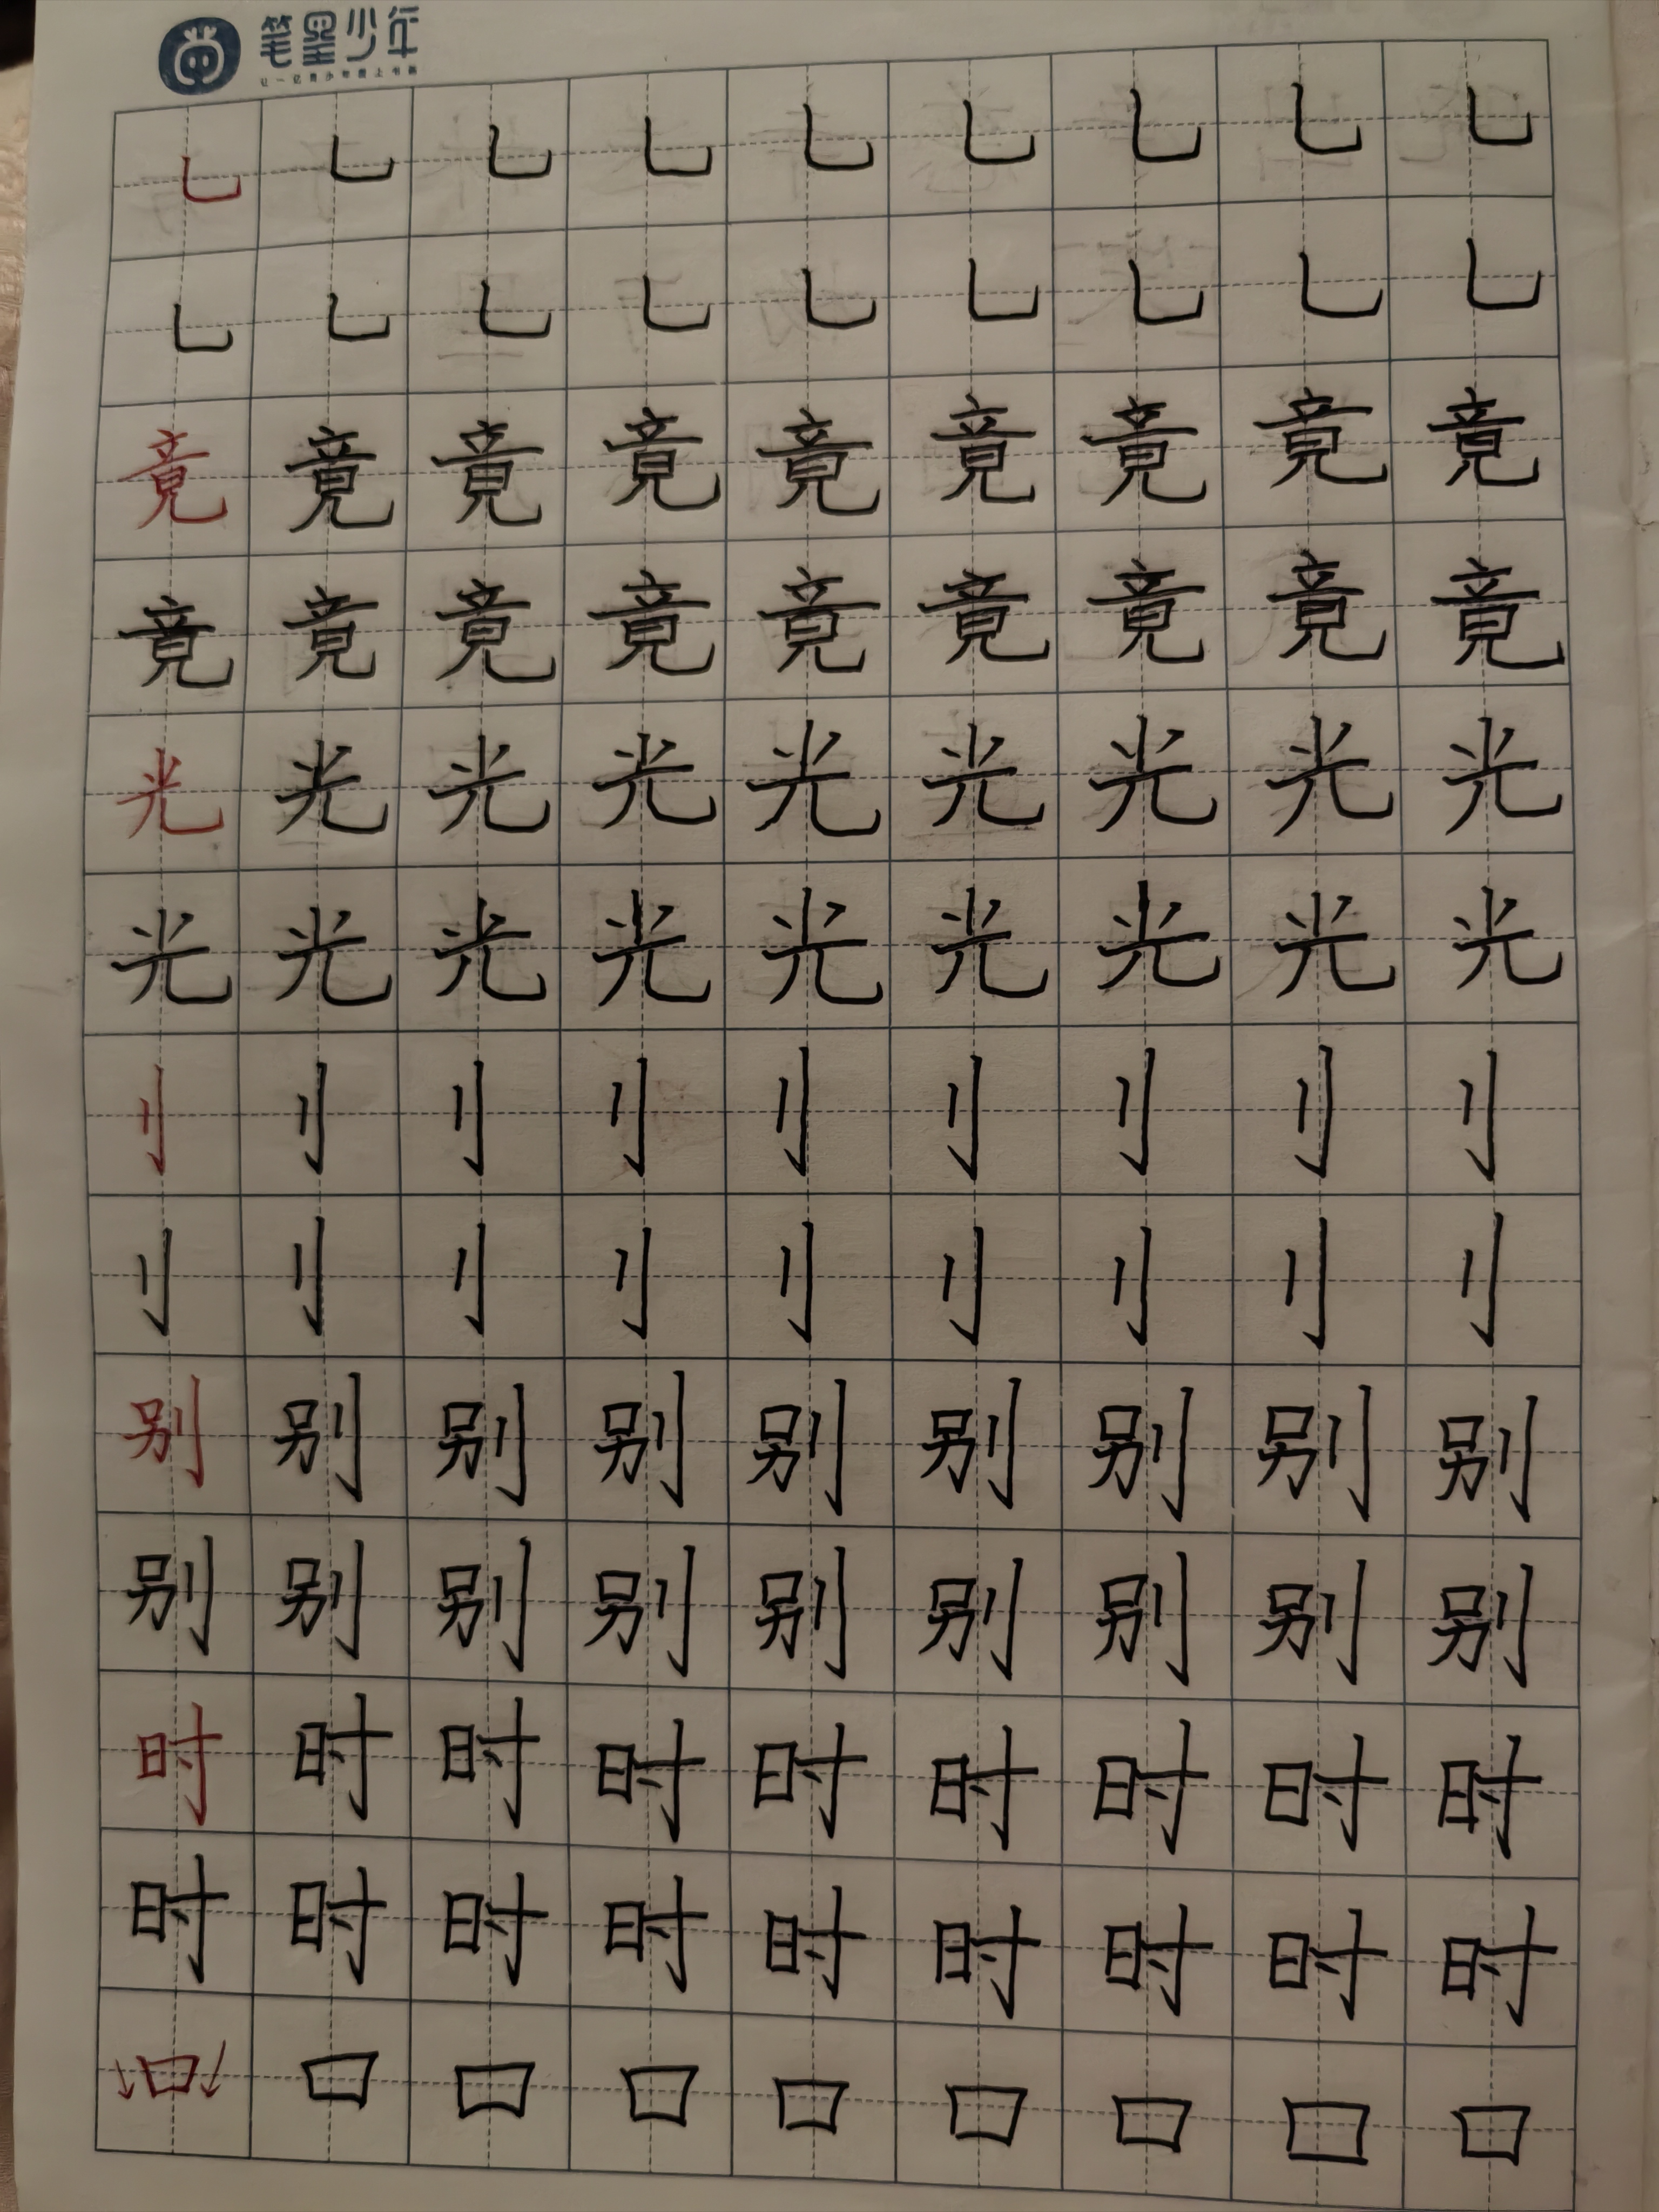 笔墨少年
乚乚乚乚乚乚乚乚乚
乚乚乚乚乚乚乚乚乚
竟竟竟竟竟竟竟竟竟
竟竟竟竟竟竟竟竟竟
光光光光光光光光光
光光光光光光光光光
刂刂刂刂刂刂刂刂刂
刂刂刂刂刂刂刂刂刂
别别别别别别别别别
别别别别别别别别别
时时时时时时时时时
时时时时时时时时时
口口口口口口口口口